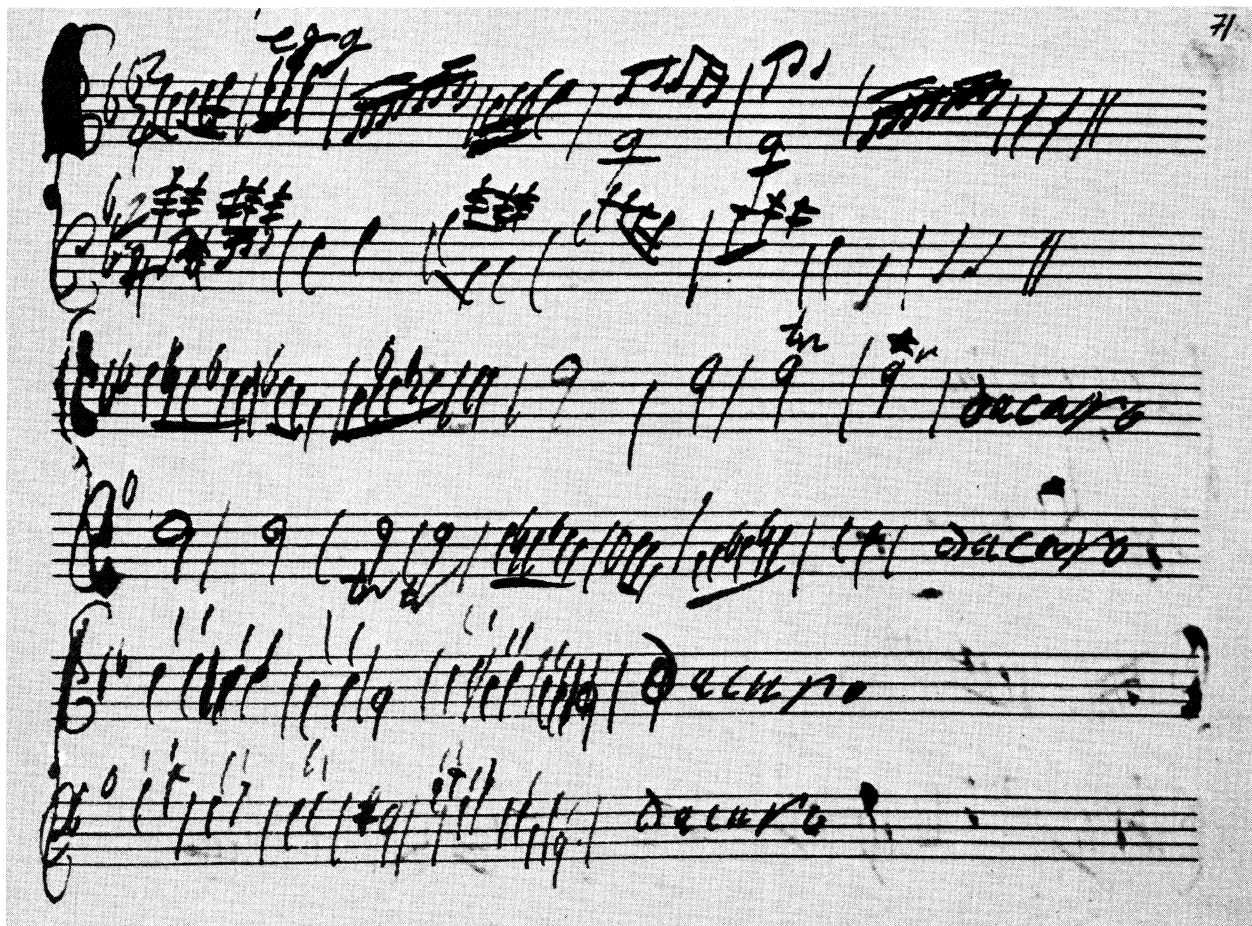 71
egg
tr
dacapo
dacapo
tr
Dacapo
dacapo